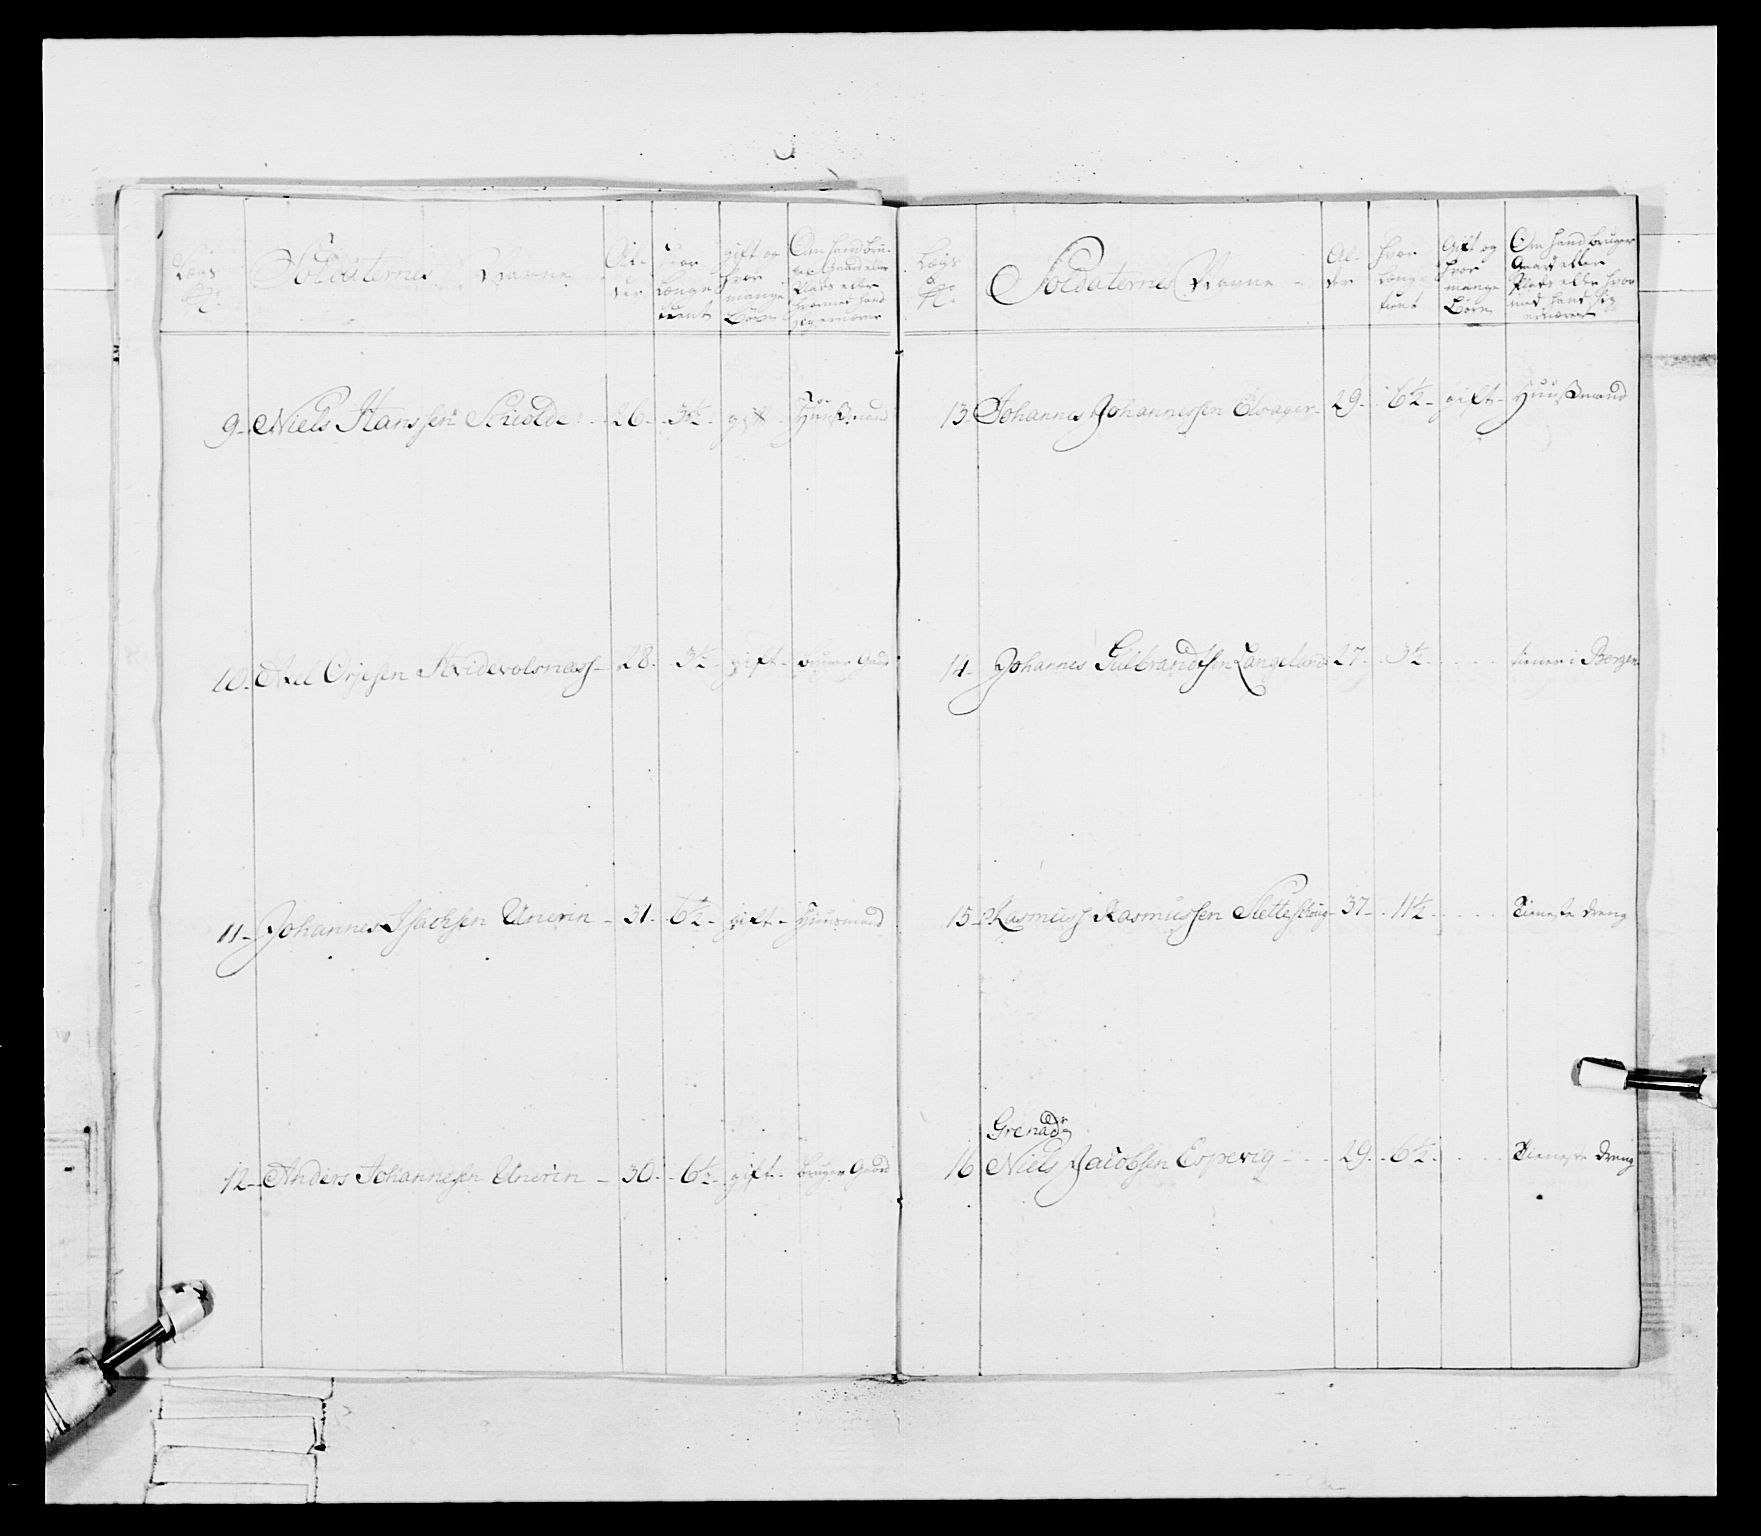 Lægs No Soldaternes Navne Al- der hvor Længe tient gift og hvor mange Børn Om hand bru- ger Gaard eller Plads eller
9 Niels Hanssen Schiolde 26 3½ gift Huusmand
10 Axel Orjesen Hvidevolsnæss 28 3½ gift bruger Gaard
11 Johannes Isachsen Unerin 31 6½ gift Huusmand
12 Anders Johannesen Unerin 30 6½ gift bruger Gaard
Lægs No Soldaternes Navne Al- der hvor Længe tient Gift og hvor mange Børn Om hand bruger Gaard eller Plads eller hvor med hand sig ernærer
13 Johannes Johannessen Elvager 29 6½ gift Huusmand
14 Johannes Gulbrandtsen Langeland 27 3½ tiener i Bergen
15 Rasmus Rasmussen Sletteschoug 37 11½ Tieneste dreng
Grenadr
16 Niels Jacobsen Espevig 29 6½ Tieneste dreng